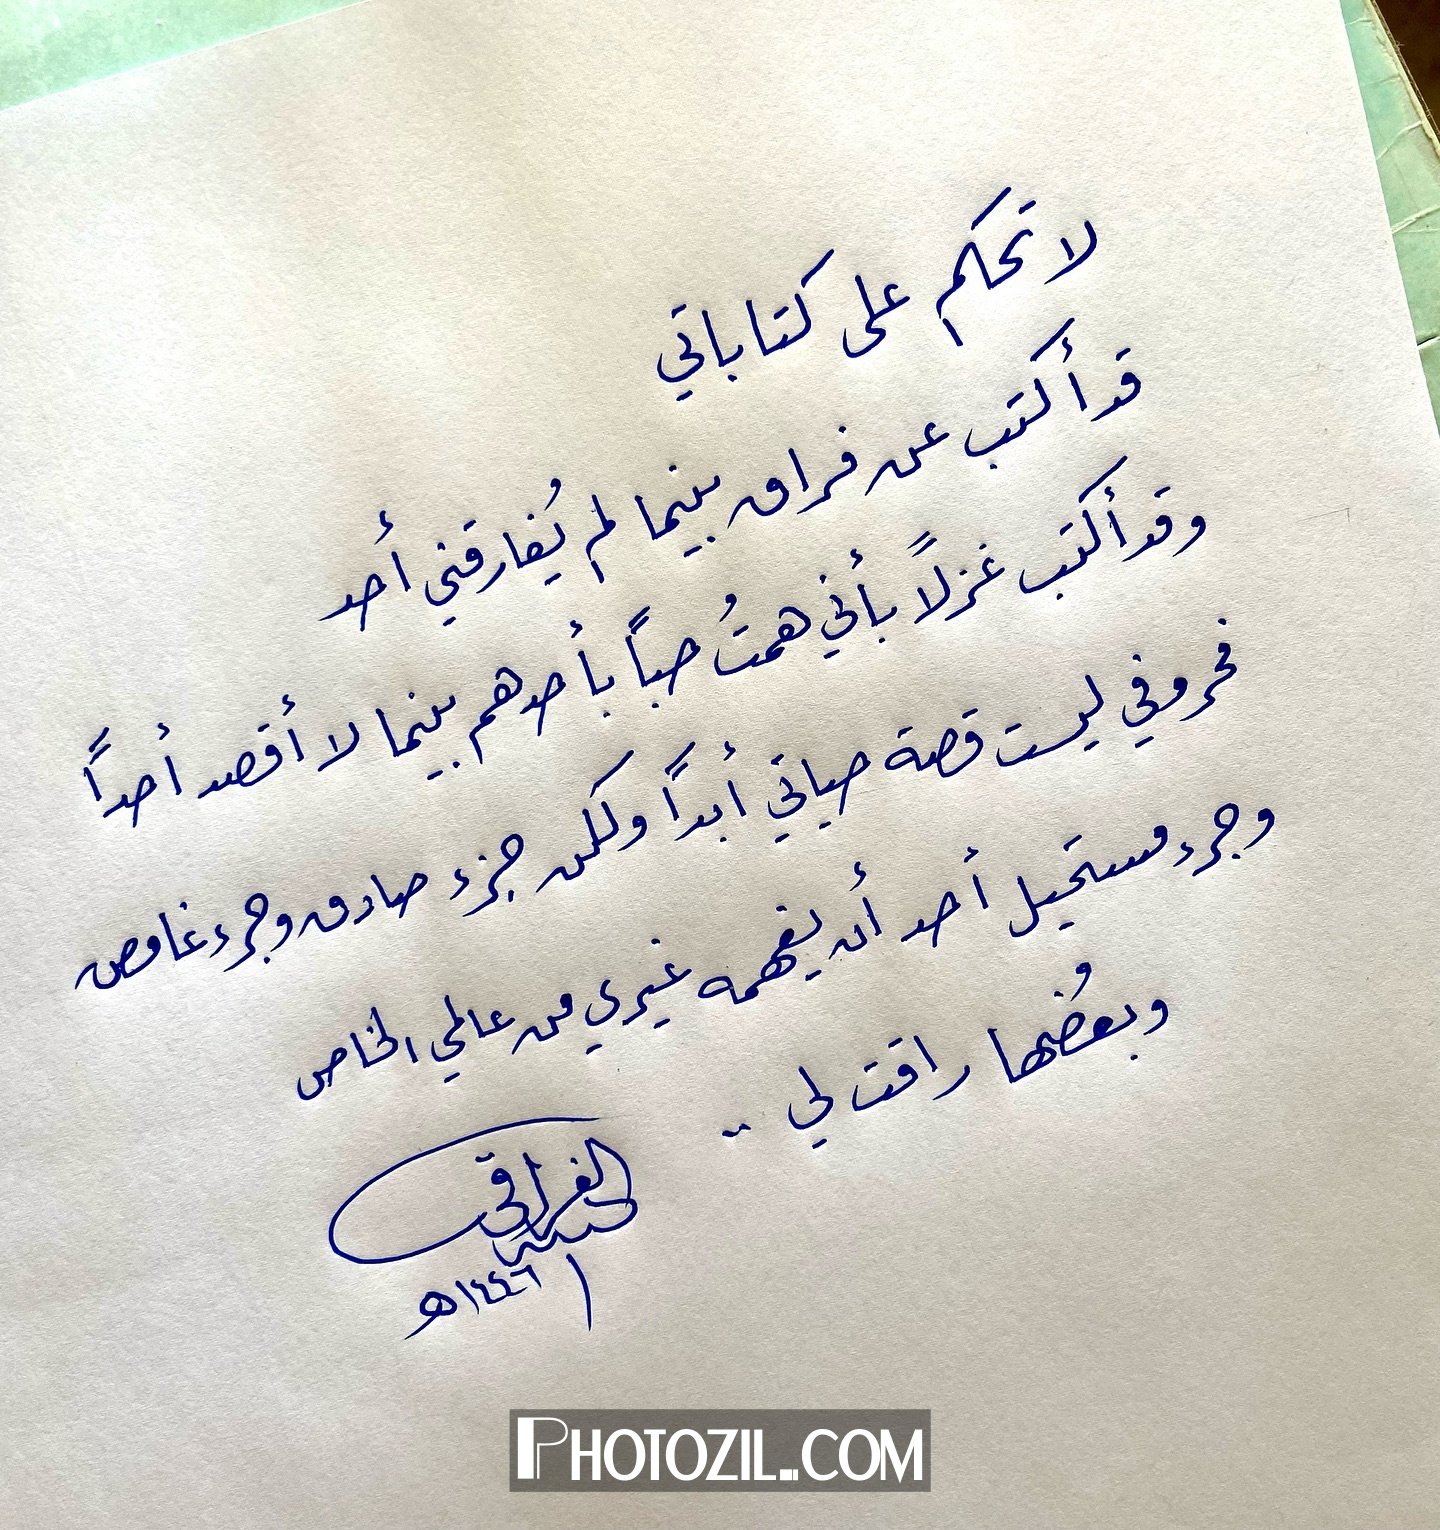 لا تحكم على كتاباتي
قد أكتب عن فراق بينما لم يُفارقني أحد
وقد أكتب غزلاً بأني همتُ حباً بأحدهم بينما لا أقصد أحداً
فحروفي ليست قصة حياتي أبداً ولكن جزء صادق وجزء غامض
وجزء مستحيل أحد أن يفهمه غيري من عالمي الخاص
وبعضُها راقت لي ..
الفراقي
١٤٤٦هـ
PHOTOZIL...COM